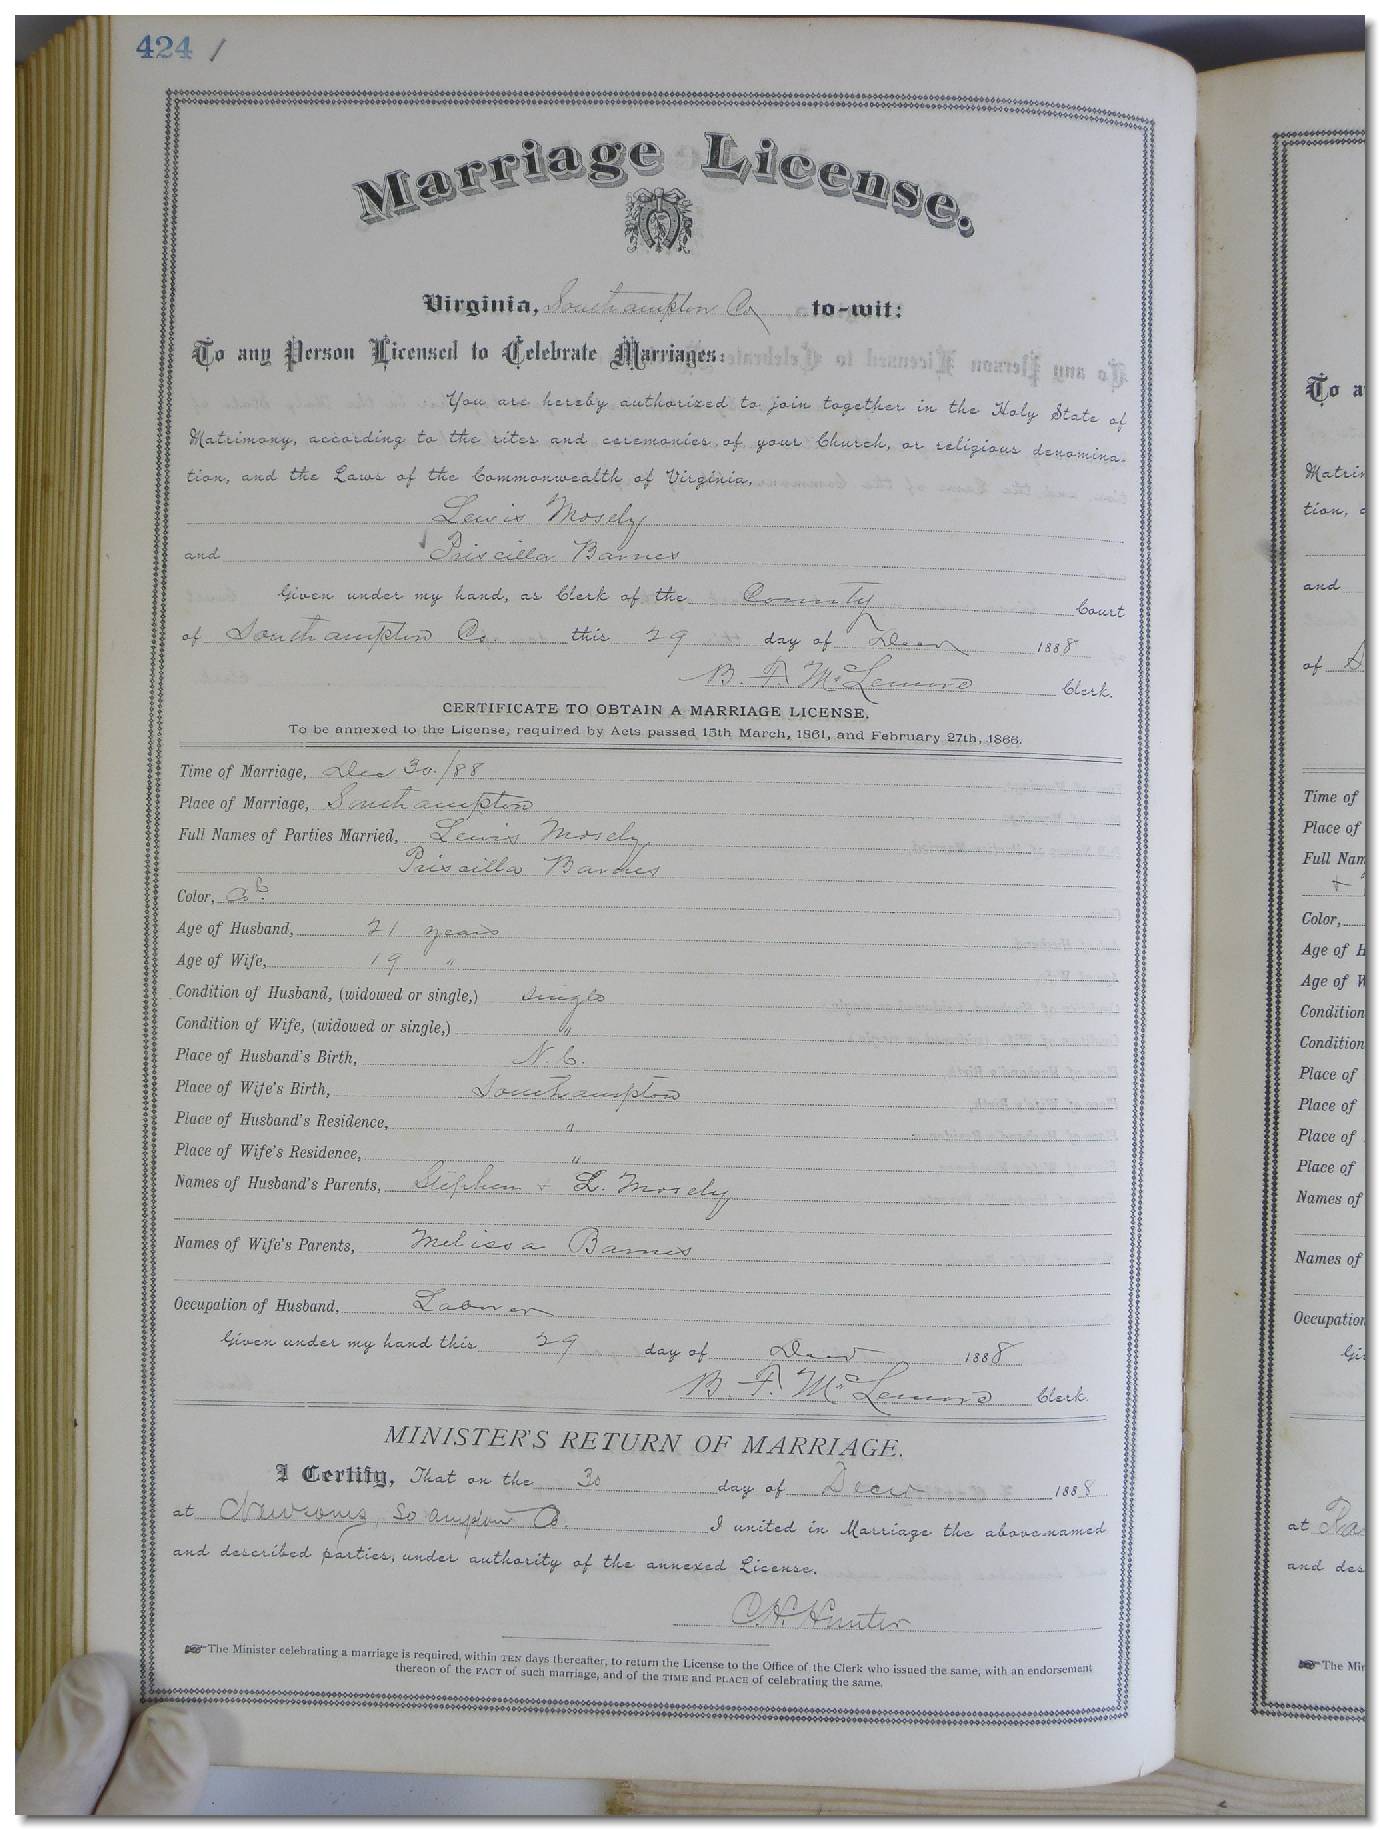 424 /
Marriage License.
Virginia, Southampton Co to-wit:
To any Person Licensed to Celebrate Marriages:
You are hereby authorized to join together in the Holy State of
Matrimony, according to the rites and ceremonies of your Church, or religious denomina-
tion, and the Laws of the Commonwealth of Virginia,
Lewis Mosely
and Priscilla Barnes
Given under my hand, as Clerk of the County Court
of Southampton Co. this 29 day of Decr 1888
B. F. McLemore Clerk.
CERTIFICATE TO OBTAIN A MARRIAGE LICENSE,
To be annexed to the License, required by Acts passed 15th March, 1861, and February 27th, 1866.
Time of Marriage, Dec 30/88
Place of Marriage, Southampton
Full Names of Parties Married, Lewis Mosely
Priscilla Barnes
Color, Col.
Age of Husband, 21 years
Age of Wife, 19 "
Condition of Husband, (widowed or single,) single
Condition of Wife, (widowed or single,) "
Place of Husband's Birth, N.C.
Place of Wife's Birth, Southampton
Place of Husband's Residence, "
Place of Wife's Residence, "
Names of Husband's Parents, Stephen + L. Mosely
Names of Wife's Parents, Melissa Barnes
Occupation of Husband, Laborer
Given under my hand this 29 day of Decr 1888
B. F. McLemore Clerk.
MINISTER'S RETURN OF MARRIAGE.
I Certify, That on the 30 day of Decr 1888
at Newsoms, So ampton Co. I united in Marriage the above-named
and described parties, under authority of the annexed License.
C. H. Hunter
☞ The Minister celebrating a marriage is required, within TEN days thereafter, to return the License to the Office of the Clerk who issued the same, with an endorsement
thereon of the FACT of such marriage, and of the TIME and PLACE of celebrating the same.
To a
Matrim
tion,
and
of
Time of
Place of
Full Nam
Color,
Age of H
Age of W
Condition
Condition
Place of
Place of
Place of
Place of
Names of
Names of
Occupation
at
and des
☞ The Min